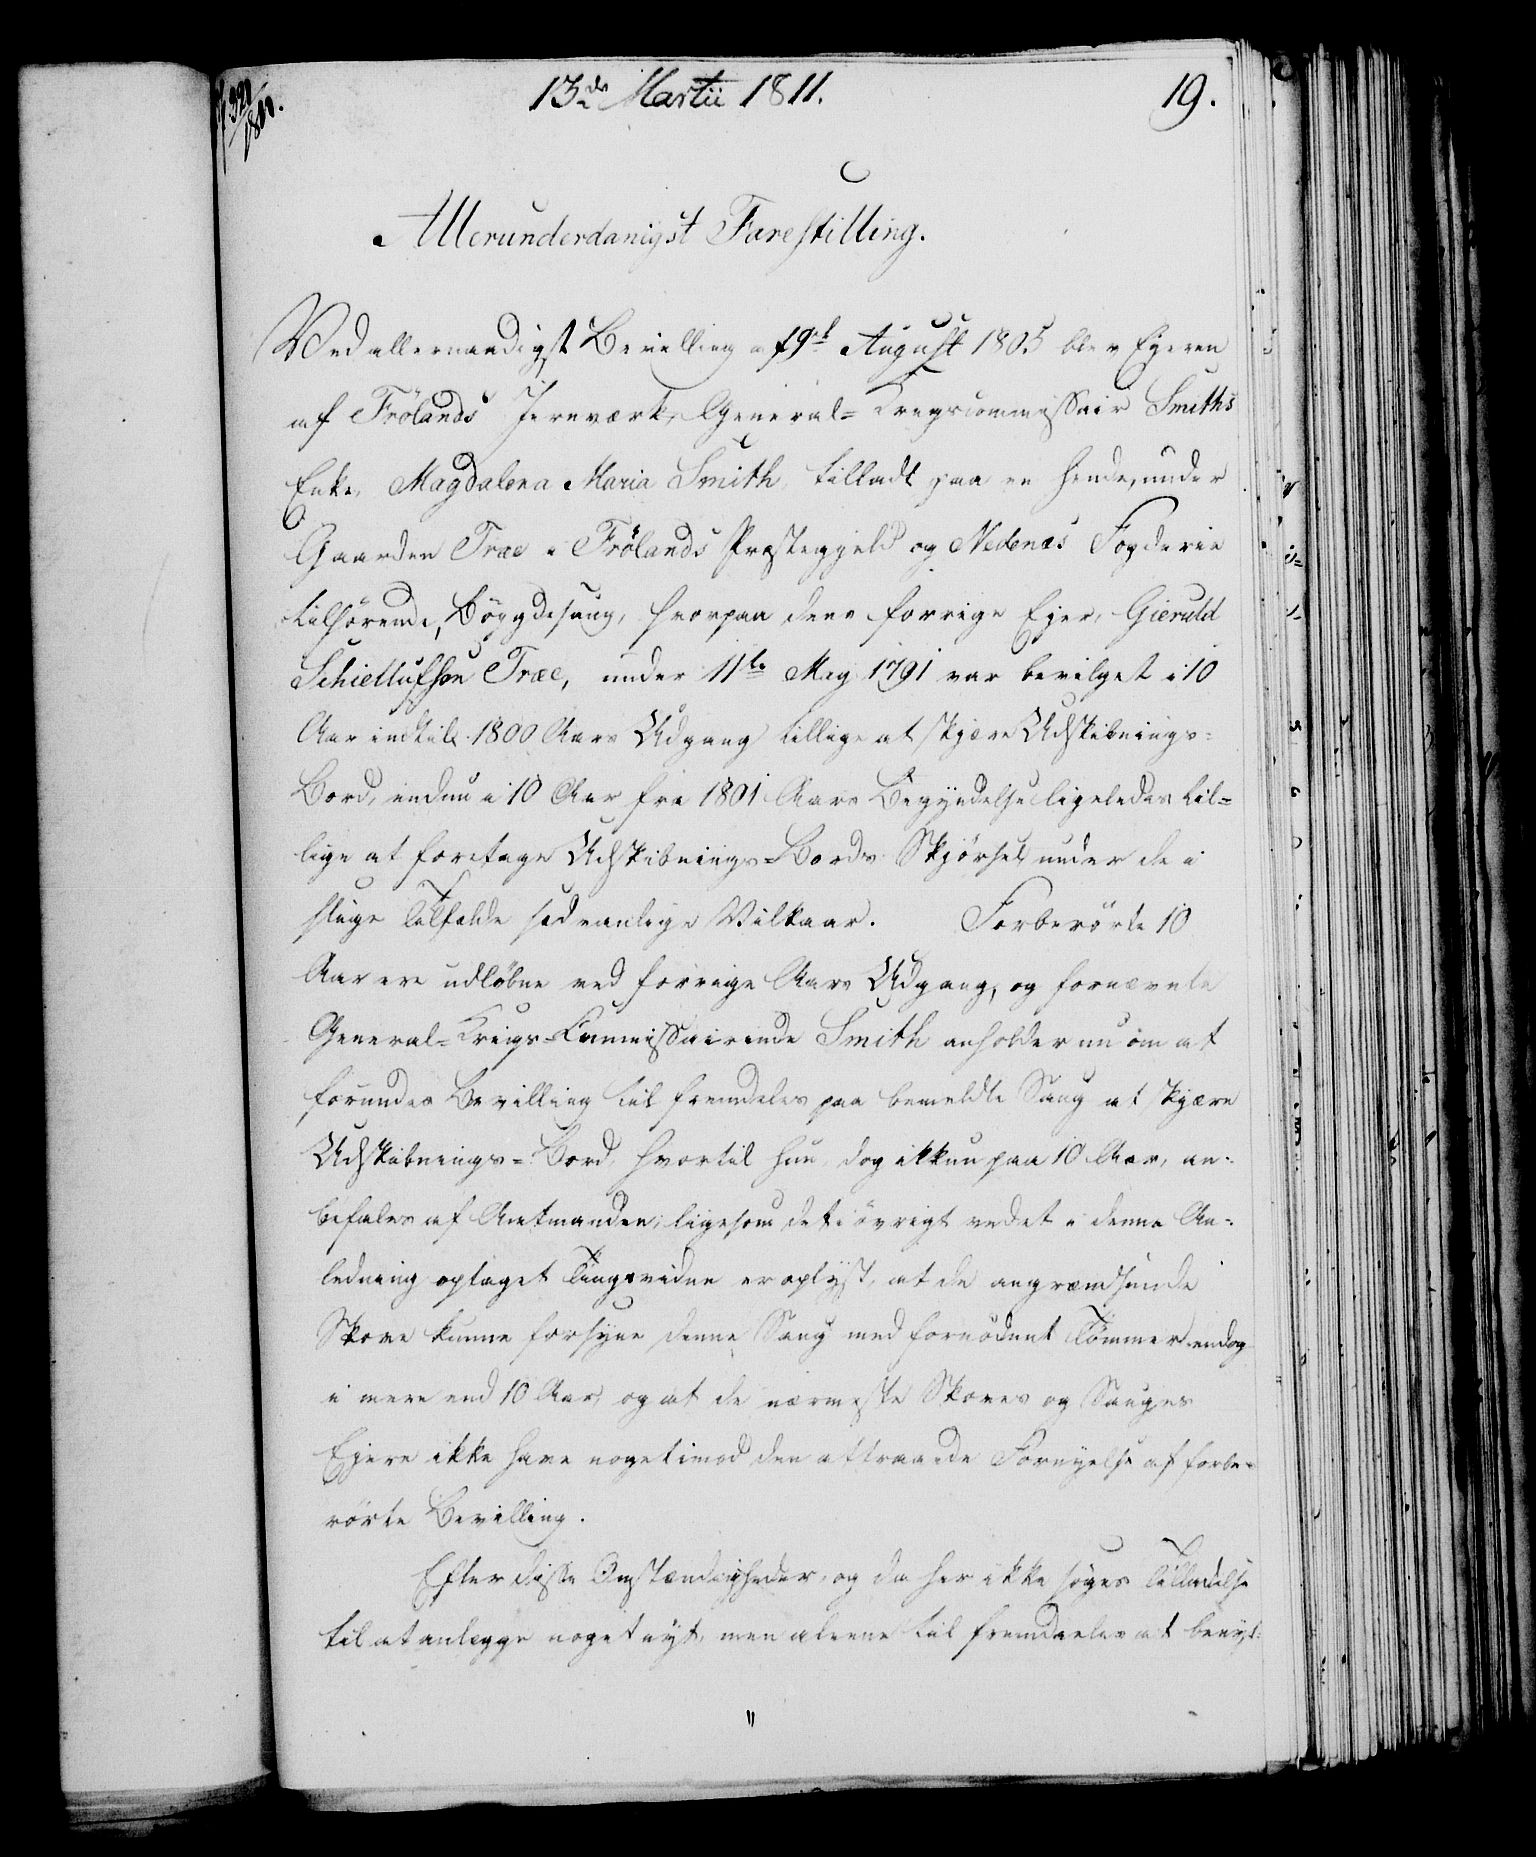 13de Martii 1811.
19.
321/1811.
Allerunderdanigst Forestilling.
Ved allernaadigst Bevilling af 9d August 1805 blev Ejeren
af Frölands Jernværk, General-Krigscommissair Smiths
Enke, Magdalena Maria Smith, tilladt paa en hende, under
Gaarden Træe i Frölands Præstegjeld og Nedenæs Fogderie
tilhörende, Böygdesaug, hvorpaa dens forrige Ejer, Gieruld
Schiellufsen Træe, under 11te May 1791 var bevilget i 10
Aar indtil 1800 Aars Udgang tillige at skjære Udskibnings-
Bord, endnu i 10 Aar fra 1801 Aars Begyndelse ligeledes til-
lige at foretage Udskibnings-Bords Skjörsel under de i
slige Tilfælde sædvanlige Vilkaar. Forberörte 10
Aar ere udlöbne ved forrige Aars Udgang, og fornævnte
General-Krigs-Commissairinde Smith anholder nu om at
forundes Bevilling til fremdeles paa bemeldte Saug at skjære
Udskibnings-Bord, hvortil hun dog ikkun paa 10 Aar, an-
befales af Amtmanden; ligesom det i övrigt ved et i denne An-
ledning optaget Tingsvidne er oplyst, at de angrændsende
Skove kunne forsyne denne Saug med fornödent Tömmer endog
i mere end 10 Aar, og at de nærmeste Skoves og Sauges
Ejere ikke have noget imod den attraaede Fornyelse af forbe-
rörte Bevilling.
Efter disse Omstændigheder, og da her ikke söges Tilladelse
til at anlægge noget nyt, men alene til fremdeeles at benyt-
"